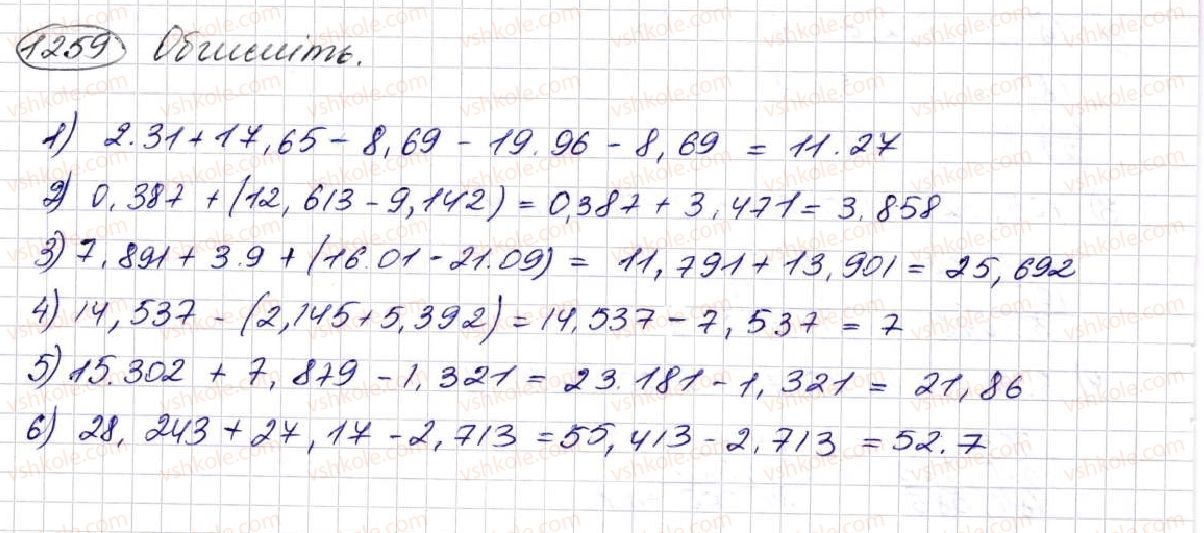 1259 Обчисліть.
1) 2.31 + 17,65 - 8,69 - 19.96 - 8,69 = 11.27
2) 0,387 + (12,613 - 9,142) = 0,387 + 3,471 = 3.858
3) 7,891 + 3.9 + (16.01 - 21.09) = 11,791 + 13,901 = 25,692
4) 14,537 - (2,145 + 5,392) = 14,537 - 7,537 = 7
5) 15.302 + 7,879 - 1,321 = 23.181 - 1,321 = 21,86
6) 28,243 + 27,17 - 2,713 = 55,413 - 2,713 = 52.7